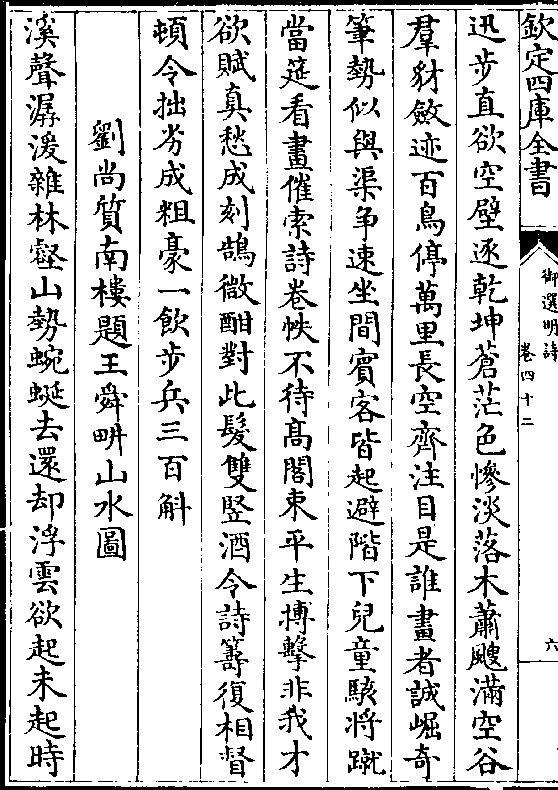 欽定四庫全書
御選明詩
卷四十二
六
迅步直欲空壁逐乾坤蒼茫色慘淡落木蕭颼滿空谷
羣豺斂迹百鳥停萬里長空齊注目是誰畫者誠崛奇
筆勢似與渠爭速坐間賓客皆起避階下兒童駭將蹴
當筵看畫催索詩卷帙不待髙閣束平生搏擊非我才
欲賦真愁成刻鵠微酣對此髮雙豎酒令詩籌復相督
頓令拙劣成粗豪一飲步兵三百斛
劉尚質南樓題王舜畊山水圖
溪聲潺湲雜林壑山勢蜿蜒去還却浮雲欲起未起時